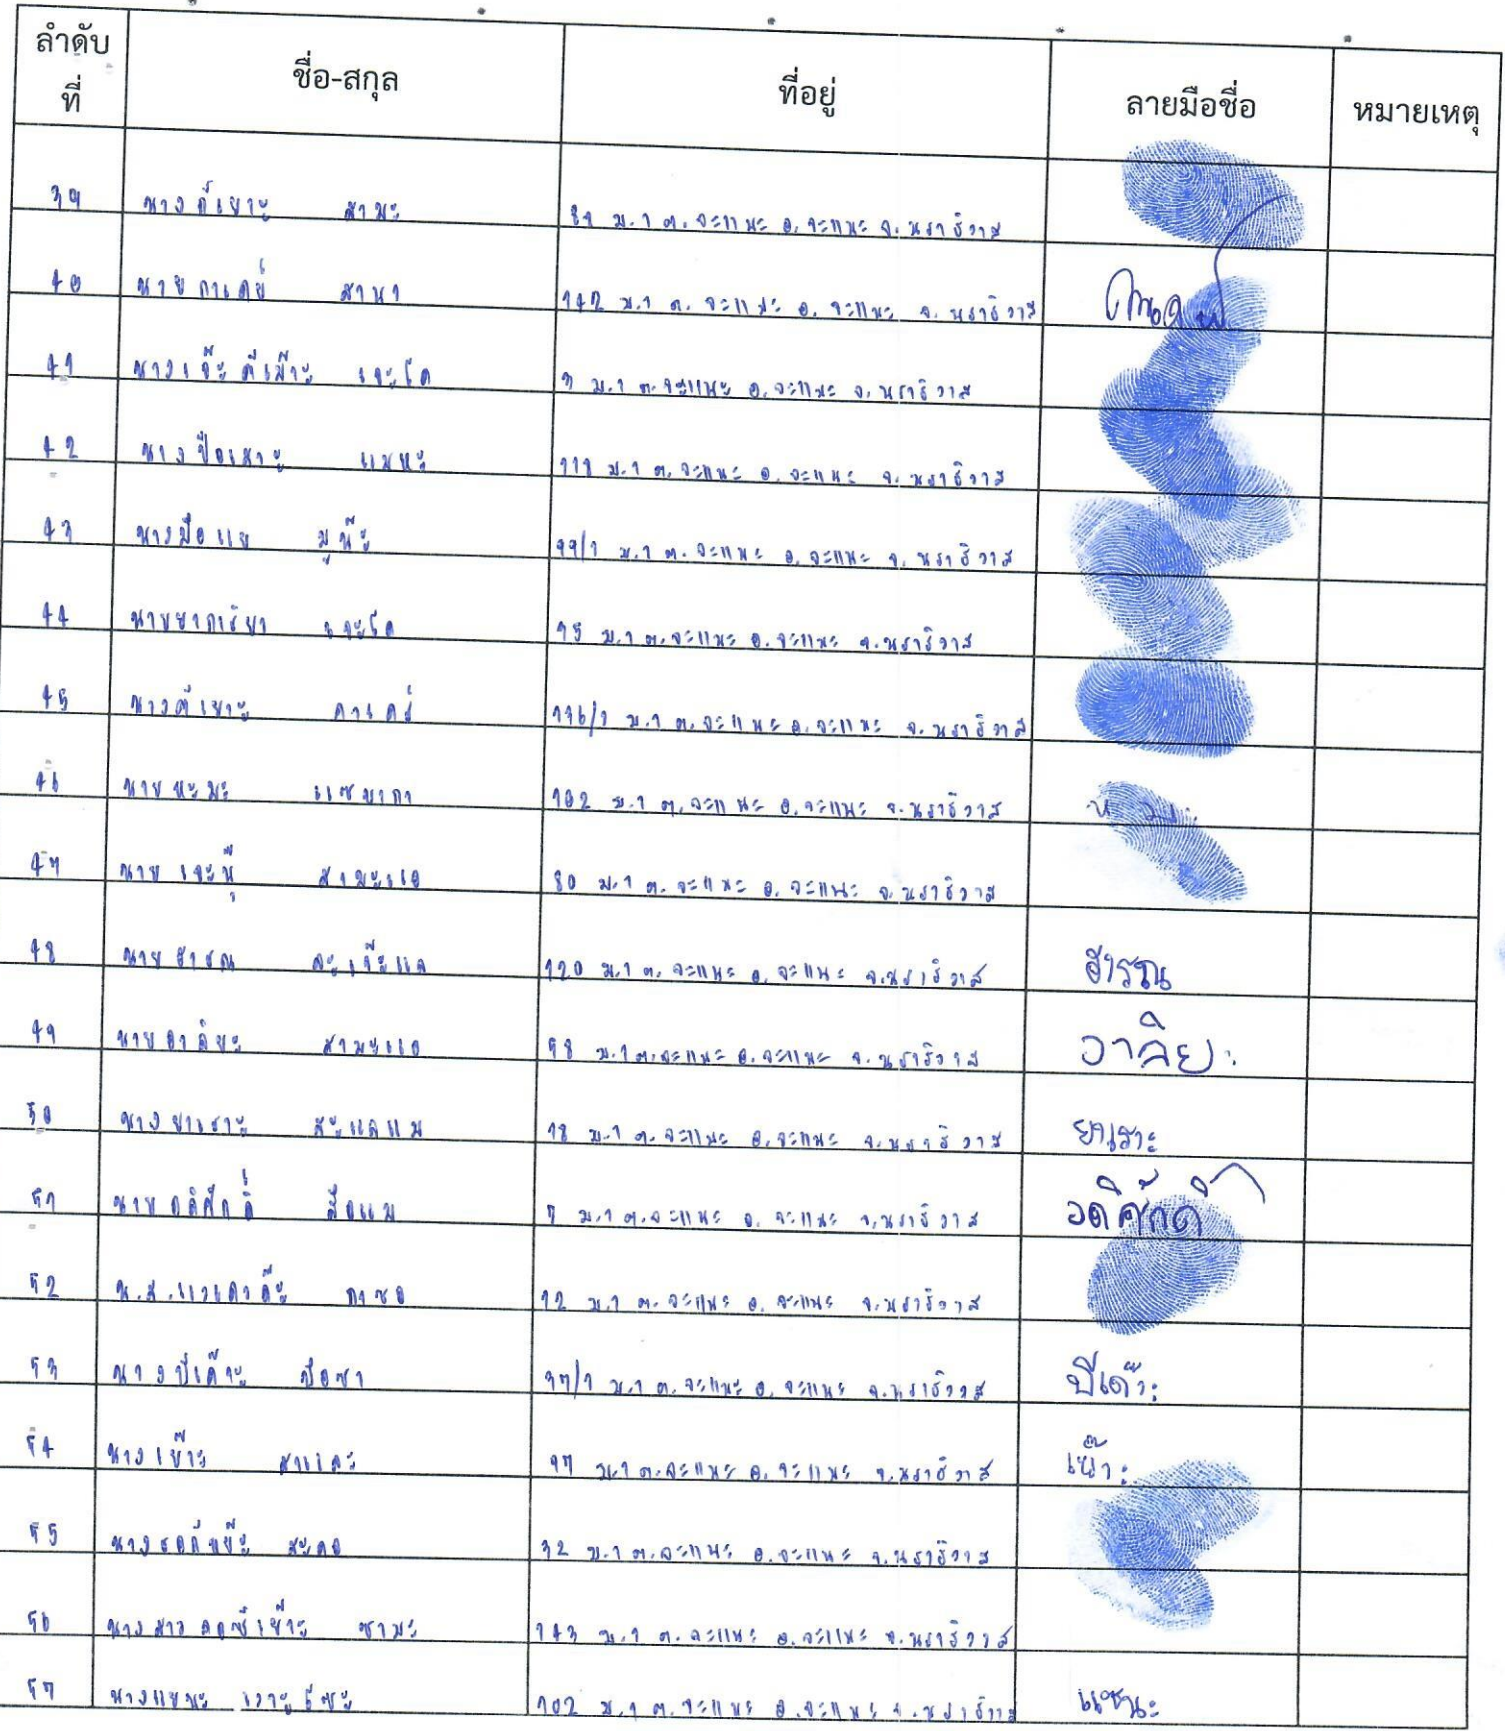 ลำดับที่ ชื่อ-สกุล ที่อยู่ ลายมือชื่อ หมายเหตุ
39 นาง สามะ 89 ม.1 ต.จะแนะ อ.จะแนะ จ.นราธิวาส
40 นาย สานา 142 ม.1 ต.จะแนะ อ.จะแนะ จ.นราธิวาส
41 นาง เจะโด 3 ม.1 ต.จะแนะ อ.จะแนะ จ.นราธิวาส
42 นาง แมหะ 111 ม.1 ต.จะแนะ อ.จะแนะ จ.นราธิวาส
43 นางมือแย มูน๊ะ 99/1 ม.1 ต.จะแนะ อ.จะแนะ จ.นราธิวาส
44 นายยาการียา เจะโด 95 ม.1 ต.จะแนะ อ.จะแนะ จ.นราธิวาส
45 นาง 116/1 ม.1 ต.จะแนะ อ.จะแนะ จ.นราธิวาส
46 นายหะมะ 102 ม.1 ต.จะแนะ อ.จะแนะ จ.นราธิวาส
47 นาย สามะแอ 80 ม.1 ต.จะแนะ อ.จะแนะ จ.นราธิวาส
48 นายฮารณ 120 ม.1 ต.จะแนะ อ.จะแนะ จ.นราธิวาส ฮารณ
49 นายอาลียะ สามะแอ 98 ม.1 ต.จะแนะ อ.จะแนะ จ.นราธิวาส อาลียะ
50 นางยาเราะ สะแลแม 18 ม.1 ต.จะแนะ อ.จะแนะ จ.นราธิวาส ยาเราะ
51 นายอดิศักดิ์ สือแม 7 ม.1 ต.จะแนะ อ.จะแนะ จ.นราธิวาส อดิศักดิ์
52 น.ส. กาซอ 12 ม.1 ต.จะแนะ อ.จะแนะ จ.นราธิวาส
53 นางบีเด๊าะ มือซา 37/1 ม.1 ต.จะแนะ อ.จะแนะ จ.นราธิวาส บีเด๊าะ
54 นาง สาและ 97 ม.1 ต.จะแนะ อ.จะแนะ จ.นราธิวาส
55 นาง 32 ม.1 ต.จะแนะ อ.จะแนะ จ.นราธิวาส
56 นางสาว ซามะ 143 ม.1 ต.จะแนะ อ.จะแนะ จ.นราธิวาส
57 102 ม.1 ต.จะแนะ อ.จะแนะ จ.นราธิวาส